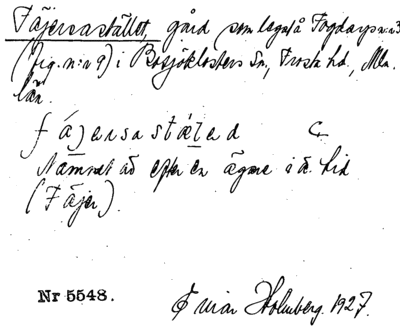 Fäjersastället, gård som legat å Fogdarp n:r 3
(fig. n:r 9) i Bosjöklosters Sn, Frosta hd, Mlm.
län.
fájersastäled C
Namnet är efter en ägare i ä. tid
(Fäjer).
Nr 5548. Einar Holmberg. 1927.